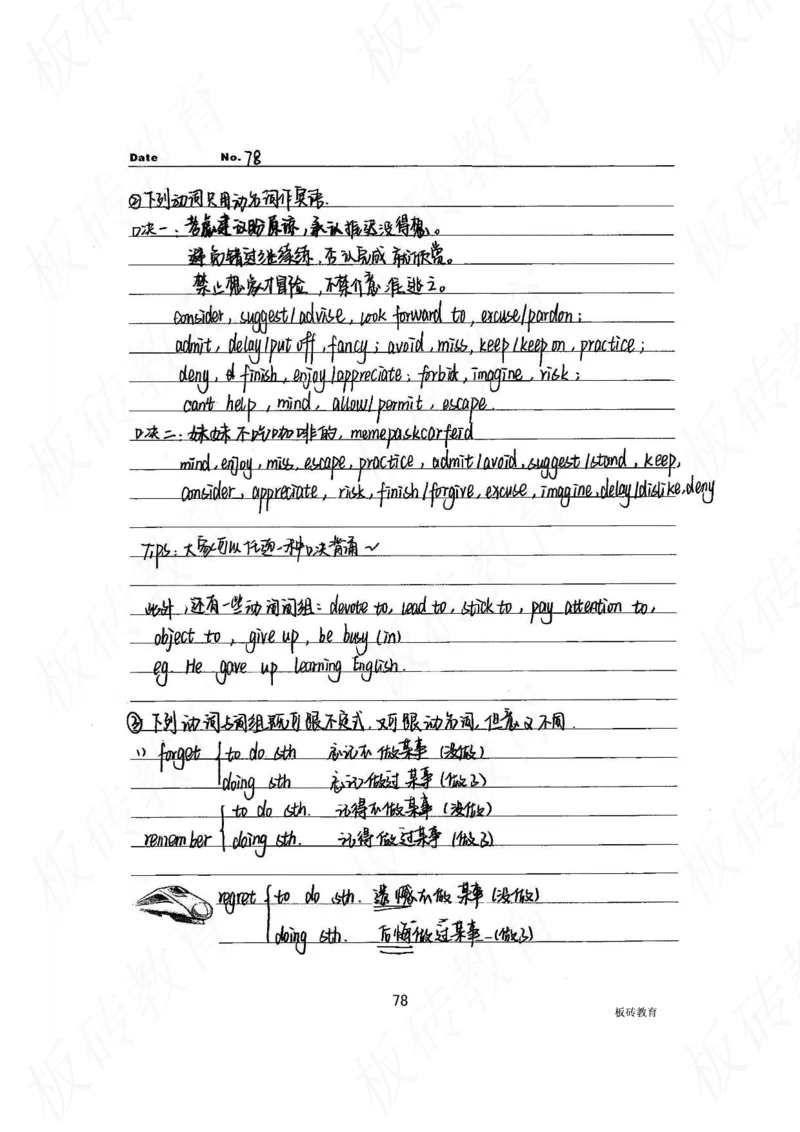 Date No. 78
②下列动词只用动名词作宾语.
口决一: 考虑建议盼原谅,承认推迟没得想。
避免错过继续练,否认完成就欣赏。
禁止想象才冒险,不禁介意准逃亡。
consider, suggest/advise, look forward to, excuse/pardon;
admit, delay/put off, fancy; avoid, miss, keep/keep on, practice;
deny, finish, enjoy/appreciate; forbid, imagine, risk;
can't help, mind, allow/permit, escape.
口决二: 妹妹不吃咖啡的, memepaskcarfeid
mind, enjoy, miss, escape, practice, admit/avoid, suggest/stand, keep,
consider, appreciate, risk, finish/forgive, excuse, imagine, delay/dislike, deny
Tips: 大家可以任选一种口决背诵~
此外,还有一些动词词组: devote to, lead to, stick to, pay attention to,
object to, give up, be busy (in)
eg. He gave up learning English.
③下列动词与词组既可跟不定式,又可跟动名词,但意义不同.
1) forget { to do sth 忘记不做某事 (没做)
doing sth 忘记做过某事 (做了)
{ to do sth. 记得不做某事 (没做)
remember doing sth. 记得做过某事 (做了)
regret { to do sth. 遗憾不做某事 (没做)
doing sth. 后悔做过某事 (做了)
78
板砖教育